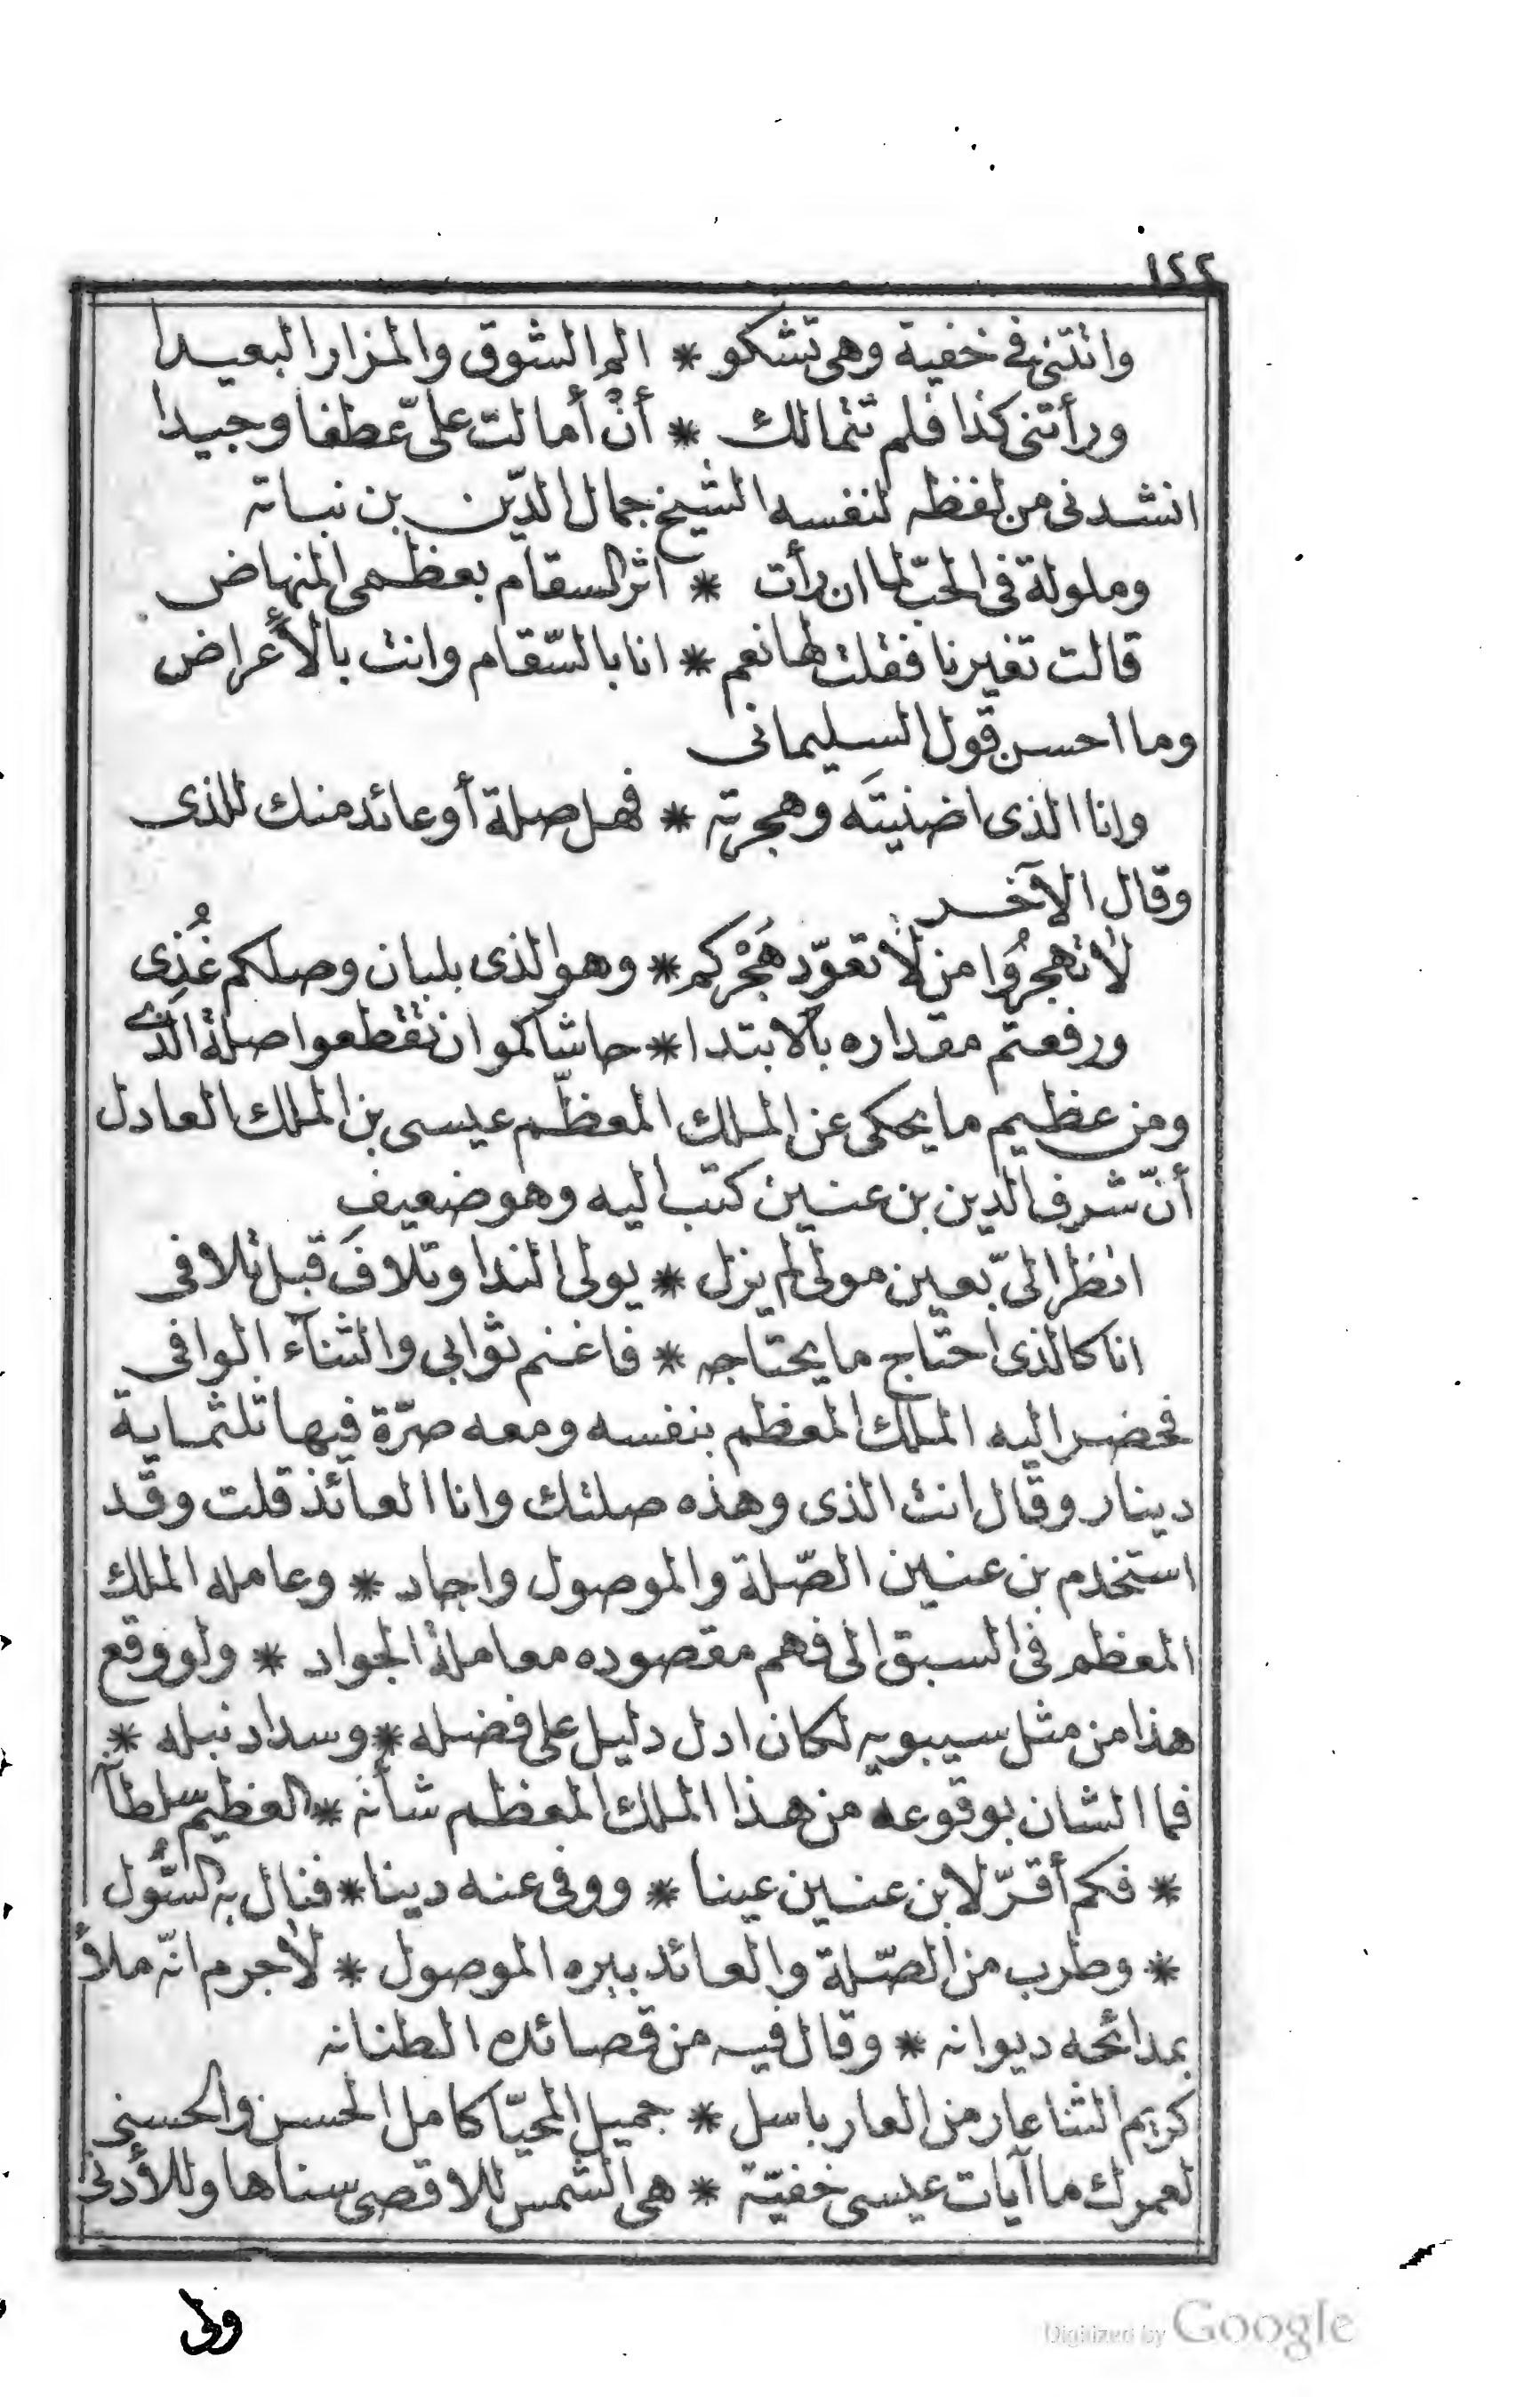 ١٤٤
وانتنى فى خفية وهى تشكو * الم الشوق والمزار البعيدا
ورأتنى كذا فلم تتمالك * أنْ أمالت علىّ عطفا وجيدا
انشدنى من لفظه لنفسه الشيخ جمال الدّين بن نباته
وملولة فى الحبّ لما ان رأت * اثر السقام بعظمى المنهاض
قالت تغيرنا فقلت لها نعم * انا بالسّقام وانت بالأعراض
وما احسن قول السليمانى
وانا الذى اضنيتَه وهجرته * فهل صلة أو عائد منك للذى
وقال الآخر
لاتهجرُوا من لاتعوّد هَجْركم * وهو الذى بلبان وصلكم غُذِى
ورفعتم مقداره بالابتدا * حاشاكموا ان تقطعوا صلة الذى
ومن عظيم ما يحكى عن الملك المعظّم عيسى بن الملك العادل
أنّ شرف الدين بن عنين كتب اليه وهو ضعيف
انظر الىّ بعين مولى لم يزل * يولى الندا وتلافَ قبل تلافى
انا كالذى احتاج ما يحتاجه * فاغنم ثوابى والثناء الوافى
فحضر اليه الملك المعظم بنفسه ومعه صرّة فيها ثلثماية
دينار وقال انت الذى وهذه صلتك وانا العائذ قلت وقد
استخدم بن عنين الصّلة والموصول واجاد * وعامله الملك
المعظم فى السبق الى فهم مقصوده معاملة الجواد * ولو وقع
هذا من مثل سيبويه لكان ادل دليل على فضله * وسداد نبله *
فما الشان بوقوعه من هذا الملك المعظم شأنه * العظيم سلطانه
* فكم أقرّ لابن عنين عينا * ووفى عنه دينا * فنال به السُّول
* وطرب من الصّلة والعائد ببره الموصول * لاجرم انّه ملأ
بمدائحه ديوانه * وقال فيه من قصائده الطنانه
كريم الثنا عار من العار باسل * جميل المحيّا كامل الحسن والحسنى
لعمرك ما آيات عيسى خفيّة * هى الشمس للاقصى سناها وللأدنى
ولى
Digitized by Google